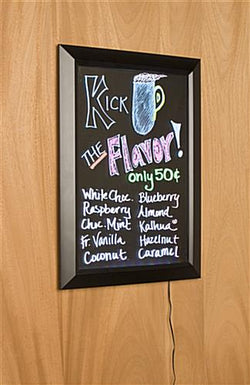 Kick
THE Flavor!
only 50¢
White Choc. Blueberry
Raspberry Almond
Choc. Mint Kallhua
Fr. Vanilla Hazelnut
Coconut Caramel